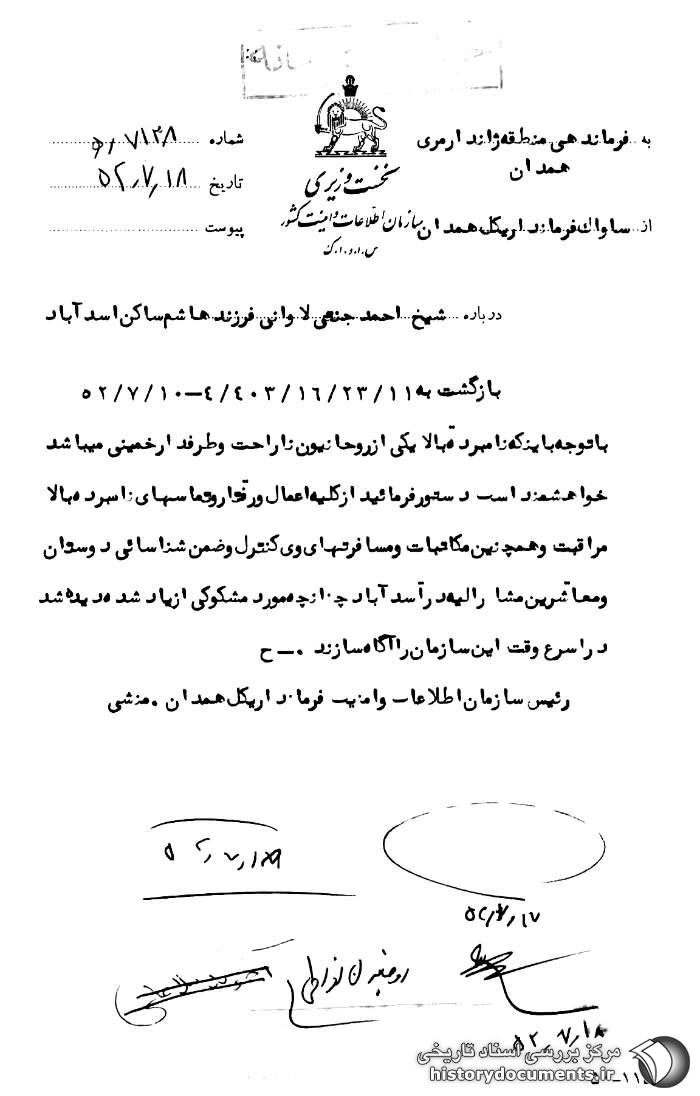 به فرماندهی منطقه ژاندارمری همدان
شماره ۵٫۷۱۳۸
تاریخ ۵۲٫۷٫۱۸
پیوست
نخست وزیری
سازمان اطلاعات و امنیت کشور
س.ا.و.ا.ک
از ساواک فرمانداریکل همدان
درباره شیخ احمد جنتی لادانی فرزند هاشم ساکن اسدآباد
بازگشت به ۱۱/۲۳/۱۶/۴۰۳/۴-۵۲/۷/۱۰
باتوجه باینکه نامبرده بالا یکی از روحانیون ناراحت وطرفدار خمینی میباشد
خواهشمند است دستور فرمائید از کلیه اعمال ورفتار وتماسهای نامبرده بالا
مراقبت وهمچنین مکاتبات ومسافرتهای وی کنترل وضمن شناسائی دوستان
ومعاشرین مشارالیه در اسدآباد چنانچه مورد مشکوکی از یاد شده دیده شد
در اسرع وقت این سازمان را آگاه سازند .ـ ح
رئیس سازمان اطلاعات وامنیت فرمانداریکل همدان . منشی
۵۲٫۷٫۱۷
۵۲٫۷٫۱۸
مرکز بررسی اسناد تاریخی
historydocuments.ir